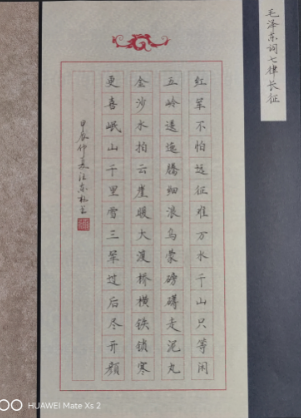 毛泽东词七律长征
红军不怕远征难万水千山只等闲
五岭逶迤腾细浪乌蒙磅礴走泥丸
金沙水拍云崖暖大渡桥横铁锁寒
更喜岷山千里雪三军过后尽开颜
甲辰仲夏
HUAWEI Mate Xs 2